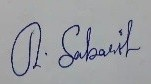 R. Sabarish